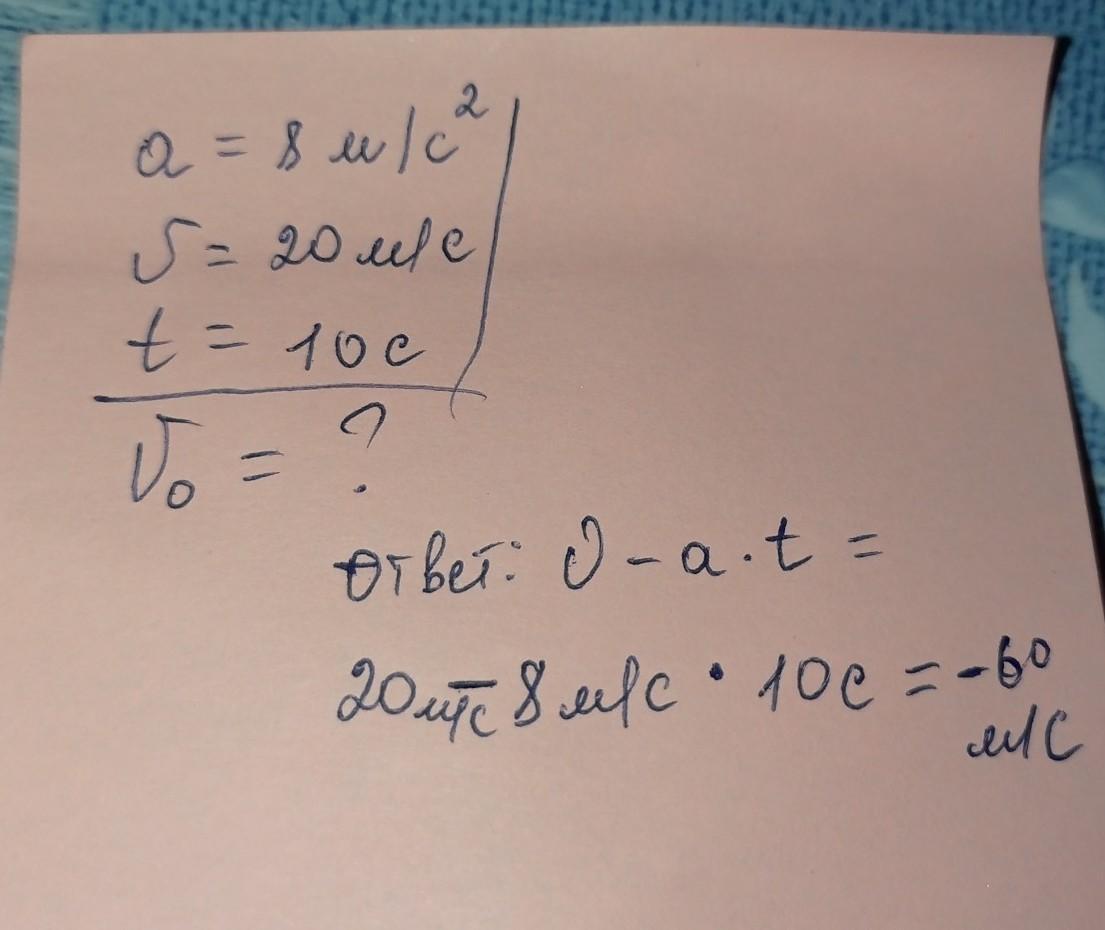 a = 8 м/с²
υ = 20 м/с
t = 10 с
υ₀ = ?
Ответ: υ - a · t =
20 м/с - 8 м/с · 10 с = -60
м/с